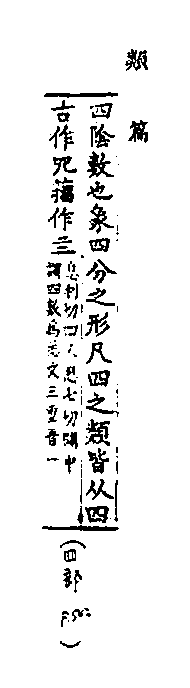 類篇
四陰數也象四分之形凡四之類皆从四
古作𦉭籀作亖
息利切四又息七切關中
謂四數爲悉文三重音一
(四部
P.502)